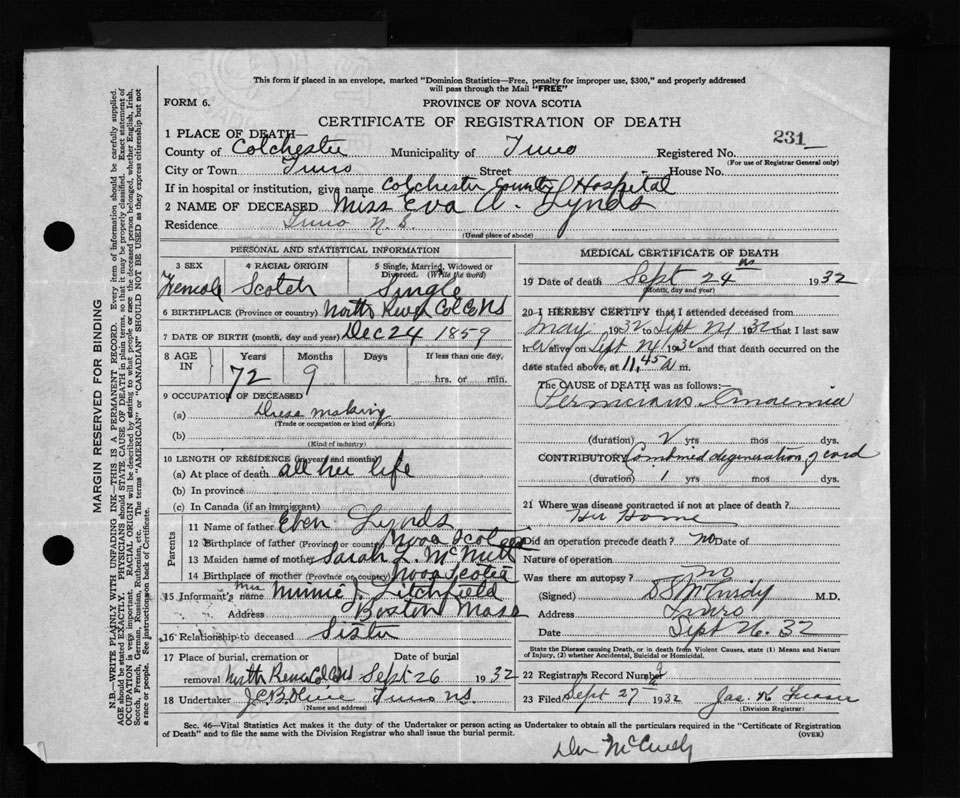 This form if placed in an envelope, marked "Dominion Statistics—Free, penalty for improper use, $300," and properly addressed
will pass through the Mail "FREE"
FORM 6.
PROVINCE OF NOVA SCOTIA
CERTIFICATE OF REGISTRATION OF DEATH
231
1 PLACE OF DEATH—
County of Colchester Municipality of Truro Registered No.
(For use of Registrar General only)
City or Town Truro Street House No.
If in hospital or institution, give name Colchester County Hospital
2 NAME OF DECEASED Miss Eva A. Lynds
Residence Truro N.S.
(Usual place of abode)
PERSONAL AND STATISTICAL INFORMATION
3 SEX 4 RACIAL ORIGIN 5 Single, Married, Widowed or
Divorced. (Write the word)
Female Scotch Single
6 BIRTHPLACE (Province or country) North River Col Co NS
7 DATE OF BIRTH (month, day and year) Dec 24 1859
8 AGE IN Years Months Days If less than one day,
72 9 hrs. or min.
9 OCCUPATION OF DECEASED
(a) Dress making
(Trade or occupation or kind of work)
(b)
(Kind of industry)
10 LENGTH OF RESIDENCE (in years and months)
(a) At place of death all her life
(b) In province
(c) In Canada (if an immigrant)
Parents
11 Name of father Eben Lynds
12 Birthplace of father (Province or country) Nova Scotia
13 Maiden name of mother Sarah L. McNutt
14 Birthplace of mother (Province or country) Nova Scotia
15 Informant's name Mrs Minnie J. Litchfield
Address Boston Mass
16 Relationship to deceased Sister
17 Place of burial, cremation or Date of burial
removal North River Col Co NS Sept 26 1932
18 Undertaker J.C.B. Olive Truro NS.
(Name and address)
MEDICAL CERTIFICATE OF DEATH
19 Date of death Sept 24th 1932
(Month, day and year)
20 I HEREBY CERTIFY that I attended deceased from
May 1932 to Sept 24 1932 that I last saw
her alive on Sept 24 1932 and that death occurred on the
date stated above, at 11.45 a m.
The CAUSE OF DEATH was as follows:
Pernicious Anaemia
(duration) 2 yrs mos dys.
CONTRIBUTORY Combined degeneration of cord
(duration) 1 yrs mos dys.
21 Where was disease contracted if not at place of death?
Her Home
Did an operation precede death? no Date of
Nature of operation
Was there an autopsy? no
(Signed) D S McCurdy M.D.
Address Truro
Date Sept 26. 32
State the Disease causing Death, or in death from Violent Causes, state (1) Means and Nature
of Injury, (2) whether Accidental, Suicidal or Homicidal.
22 Registrar's Record Number
23 Filed Sept 27 1932 Jas. K
(Division Registrar)
Sec. 46—Vital Statistics Act makes it the duty of the Undertaker or person acting as Undertaker to obtain all the particulars required in the "Certificate of Registration
of Death" and to file the same with the Division Registrar who shall issue the burial permit.
(OVER)
McCurdy
MARGIN RESERVED FOR BINDING
N.B.—WRITE PLAINLY WITH UNFADING INK—THIS IS A PERMANENT RECORD. Every item of information should be carefully supplied.
AGE should be stated EXACTLY. PHYSICIANS should STATE CAUSE OF DEATH in plain terms, so that it may be properly classified. Exact statement of
OCCUPATION is very important. RACIAL ORIGIN will be described by stating to what people or race the deceased person belonged, whether English, Irish,
Scotch, French, German, Russian, Ruthenian, etc. The terms "AMERICAN" or "CANADIAN" SHOULD NOT BE USED as they express citizenship but not
a race or people. See instructions on back of Certificate.